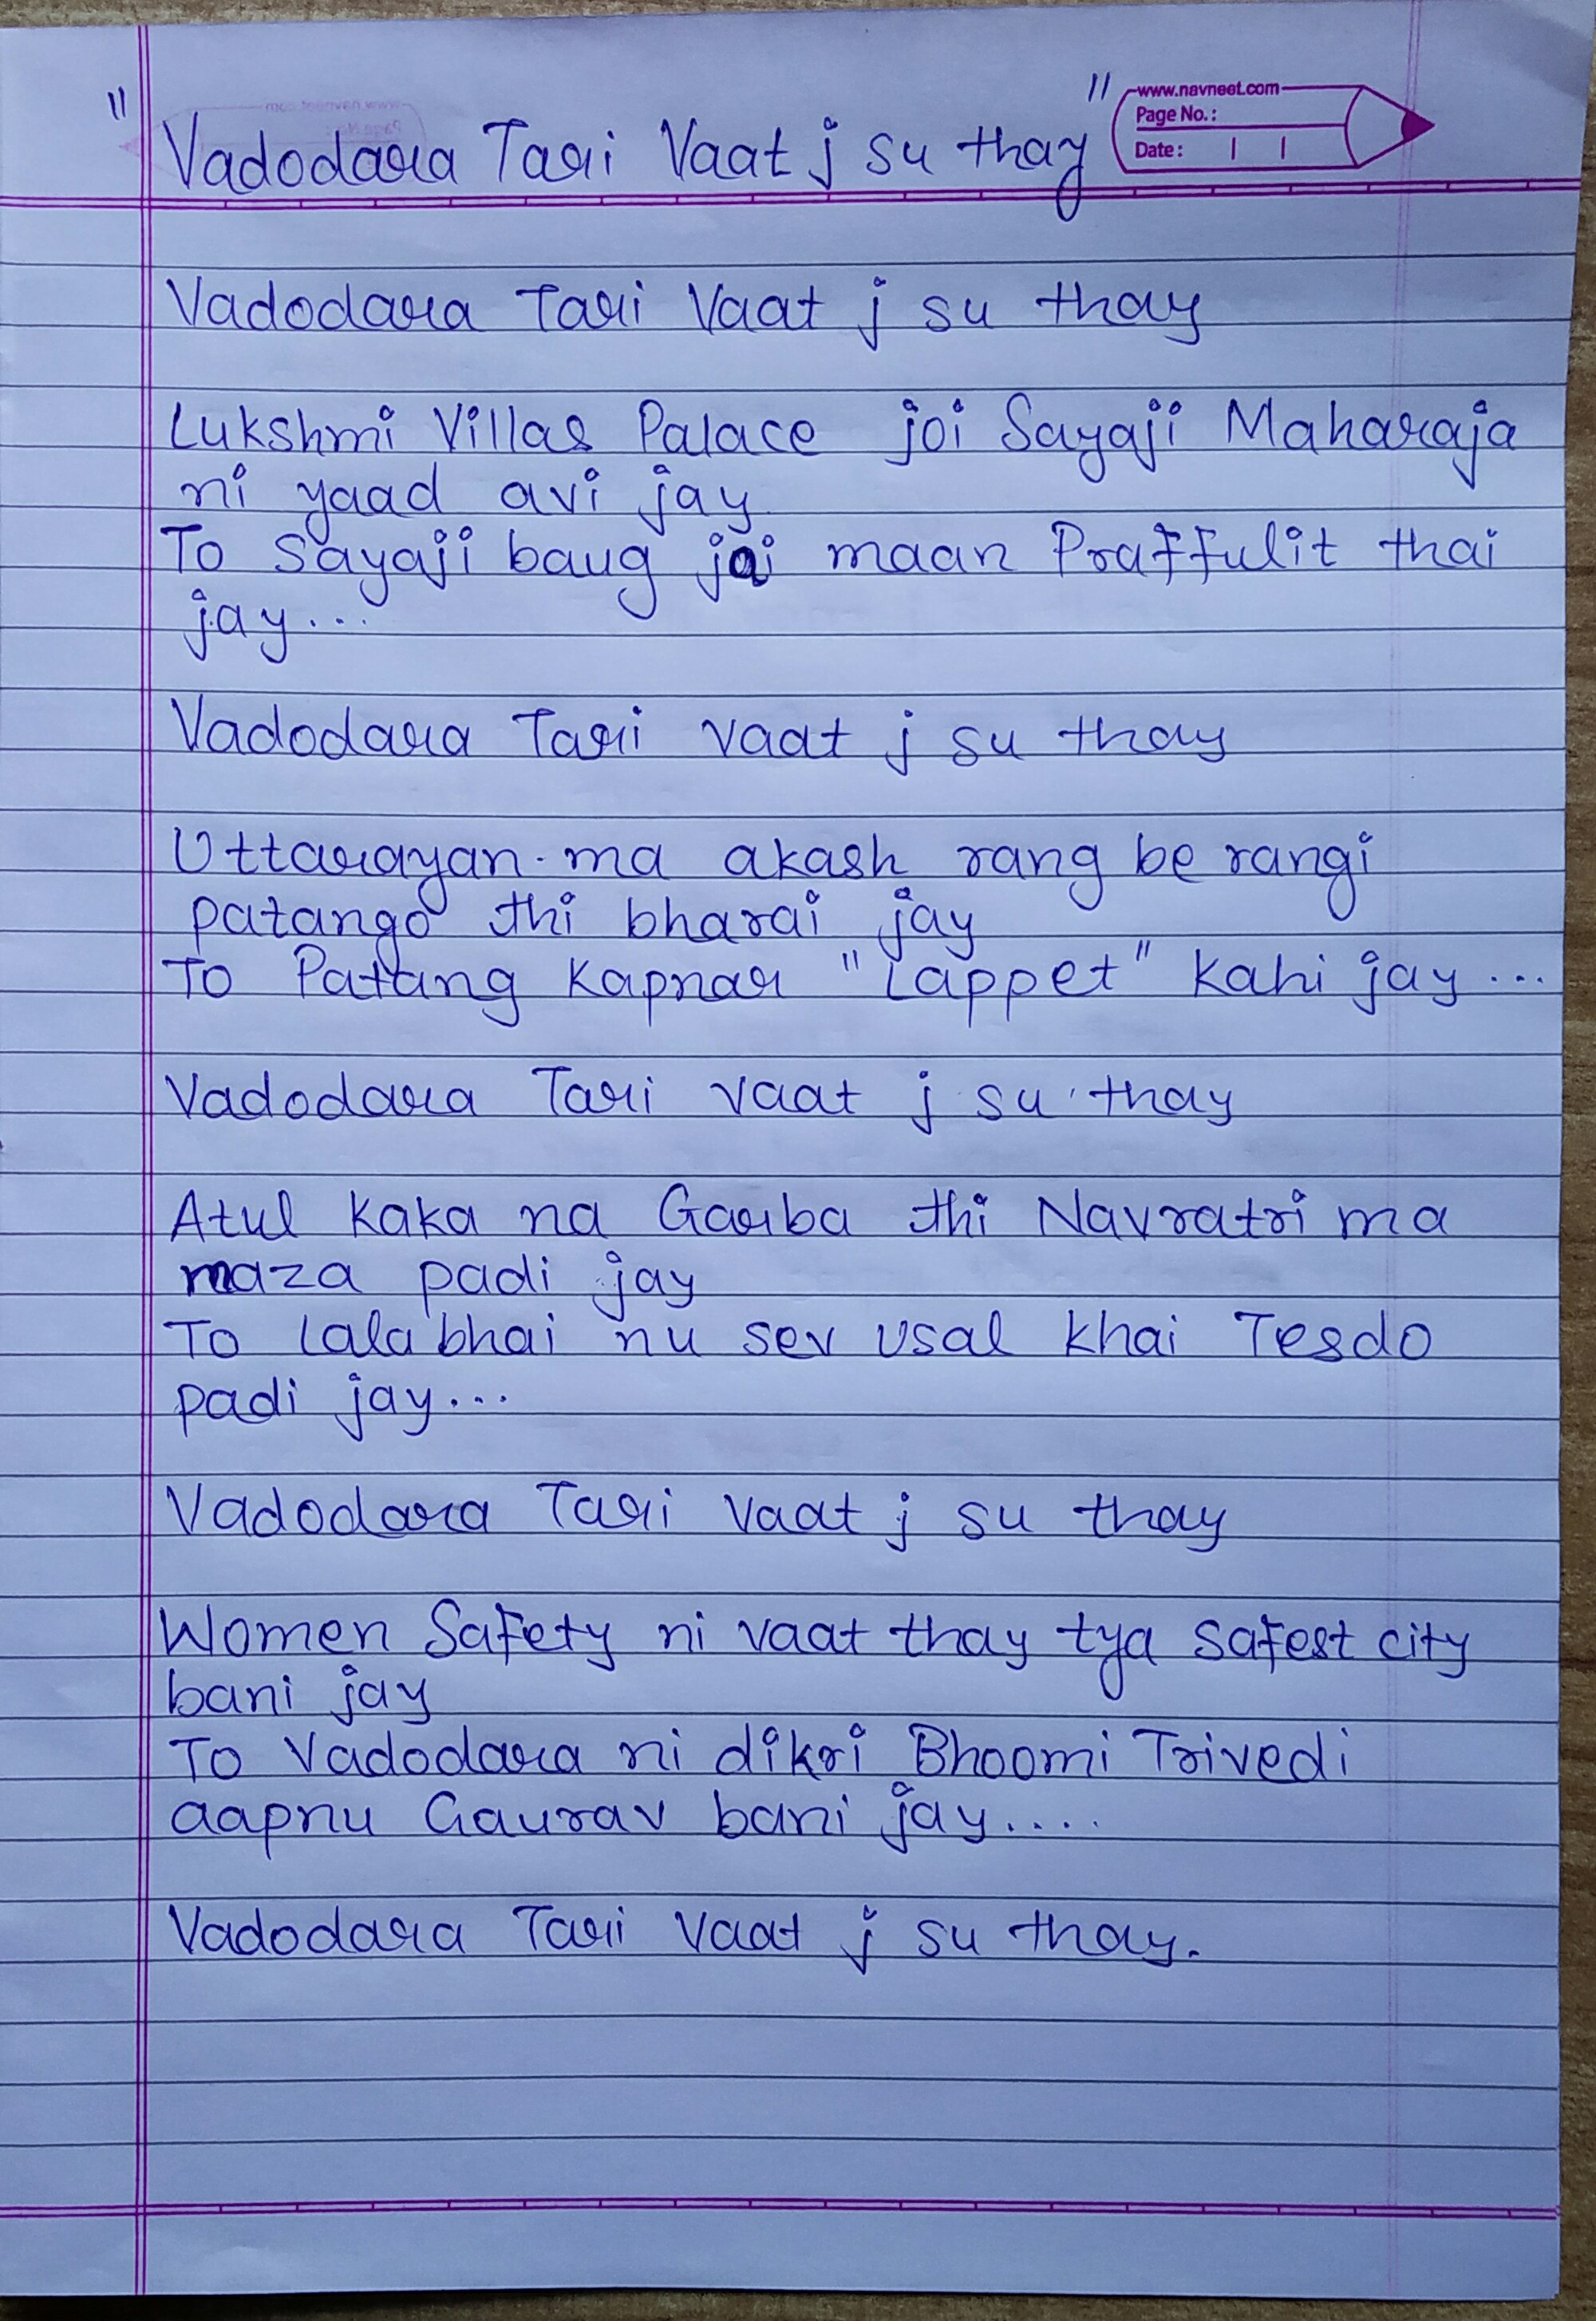 "Vadodara Tari Vaat j su thay"
www.navneet.com
Page No.:
Date:
Vadodara Tari Vaat j su thay
Lukshmi Villas Palace joi Sayaji Maharaja
ni yaad avi jay
To Sayaji baug jai maan Praffulit thai
jay...
Vadodara Tari vaat j su thay
Uttarayan ma akash rang be rangi
patango thi bharai jay
To Patang kapnar "Lappet" kahi jay...
Vadodara Tari vaat j su thay
Atul kaka na Garba thi Navratri ma
maza padi jay
To Lalabhai nu sev usal khai Tesdo
padi jay...
Vadodara Tari vaat j su thay
Women Safety ni vaat thay tya safest city
bani jay
To Vadodara ni dikri Bhoomi Trivedi
aapnu Gaurav bani jay....
Vadodara Tari Vaat j su thay.